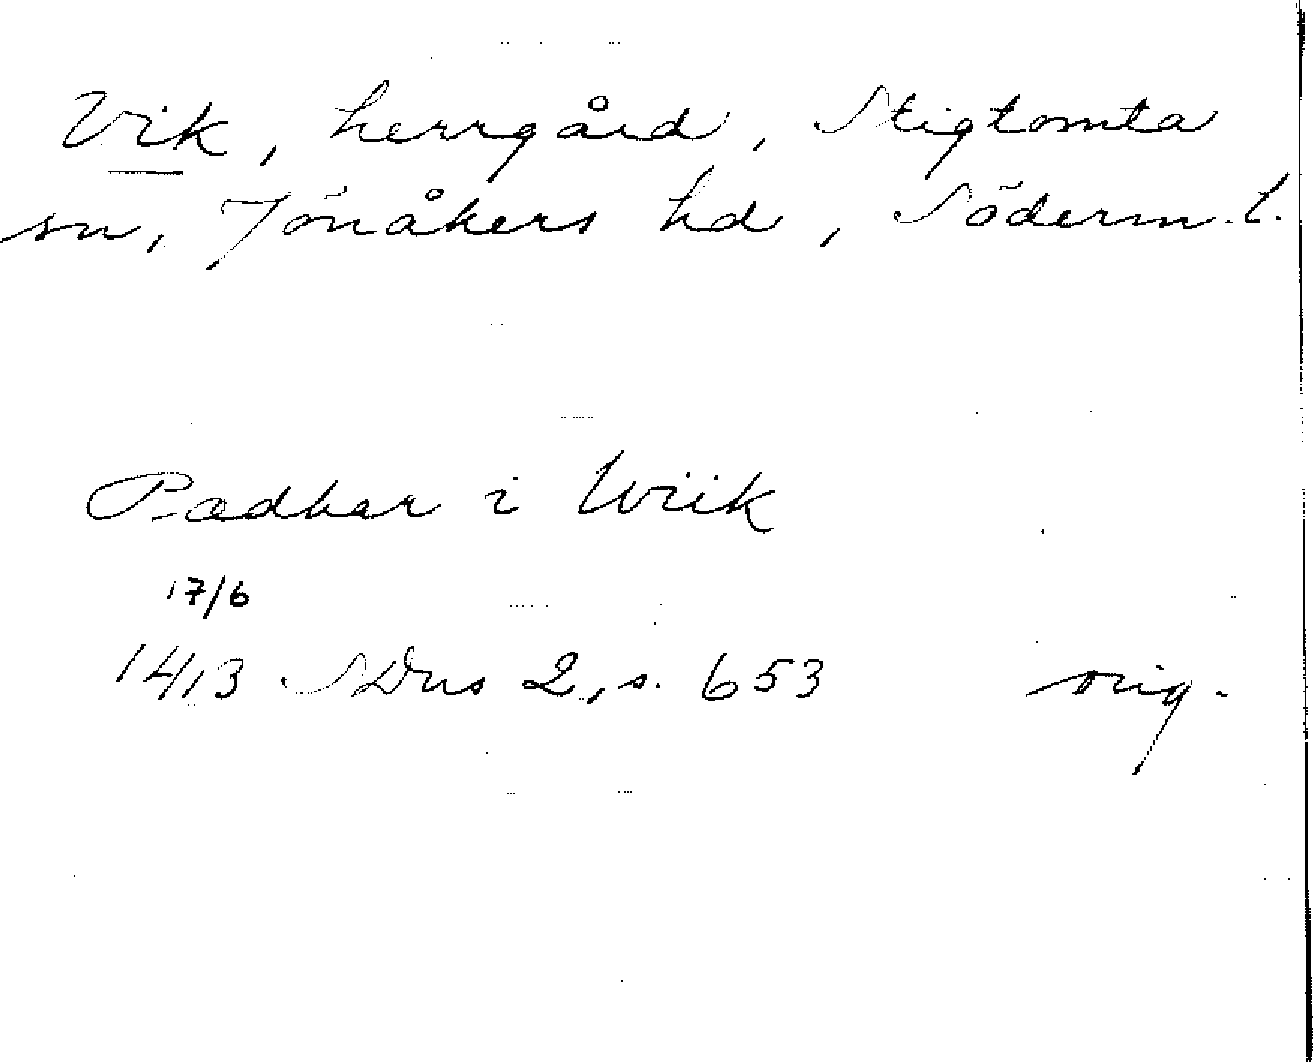 Vik, herrgård, Stigtomta
sn, Jönåkers hd, Söderm. l.
Radhar i Wiik
17/6
1413 SDns 2, s. 653 orig.